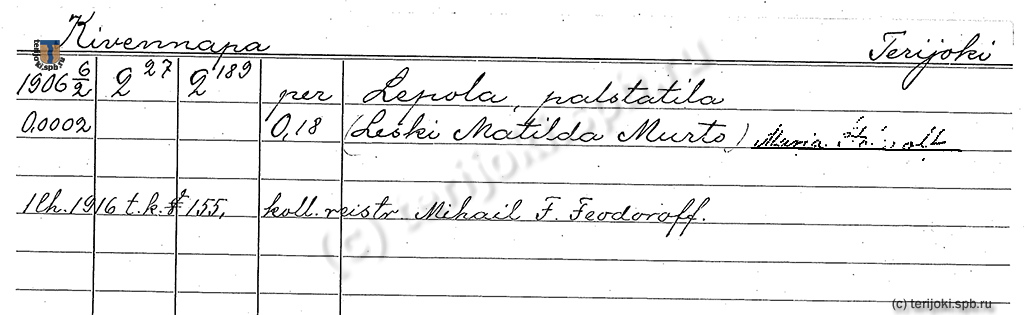 Kivennapa Terijoki
1906 6/2 2 27 2 189 per Lepola, palstatila
0,0002 0,18 (Leski Matilda Murto) Maria
1 lh. 1916 t.k. § 155, koll. reistr. Mihail F. Feodoroff.
(c) terijoki.spb.ru
terijoki.spb.ru
(c) terijoki.spb.ru